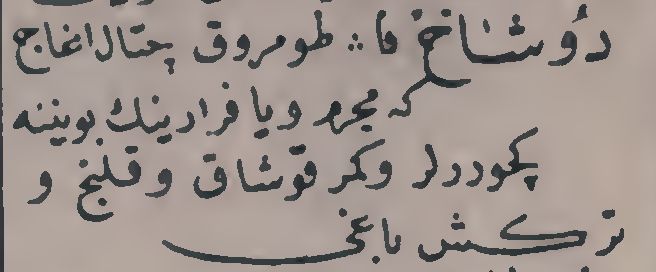 دُوشاخْ فا: طومروق چتال اغاج
كه مجرم ويا فرارينك بويننه
كچوررلر وكمر قوشاق وقلنج و
تركش باغى